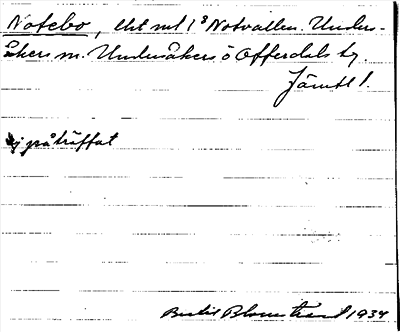 Notebo, lht nr 1³ Notvallen. Unders-
åkers sn. Undersåkers o Offerdals tg.
Jämtl l.
ej påträffat
Bertil Blomstrand 1934